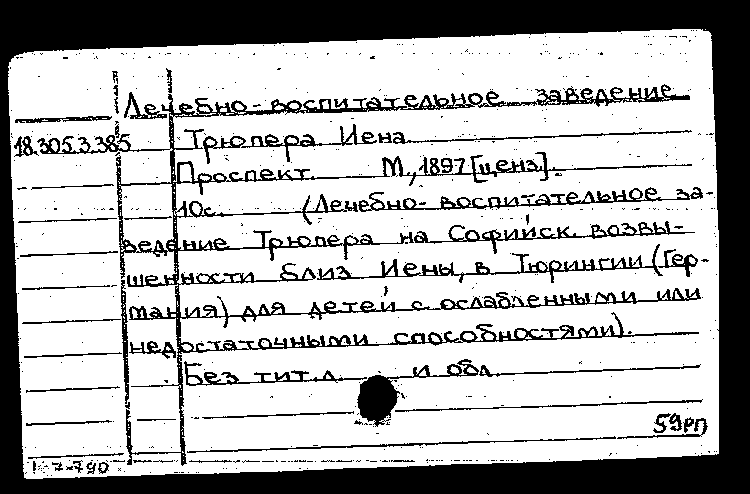 Лечебно-воспитательное заведение
18.305.3.385 Трюпера Иена
Проспект. М., 1897 [ценз].
10с. (Лечебно-воспитательное за-
ведение Трюпера на Софийск. возвы-
шенности близ Иены, в Тюрингии (Гер-
мания) для детей с ослабленными или
недостаточными способностями).
Без тит. л. и обл.
59РП
1-7-790